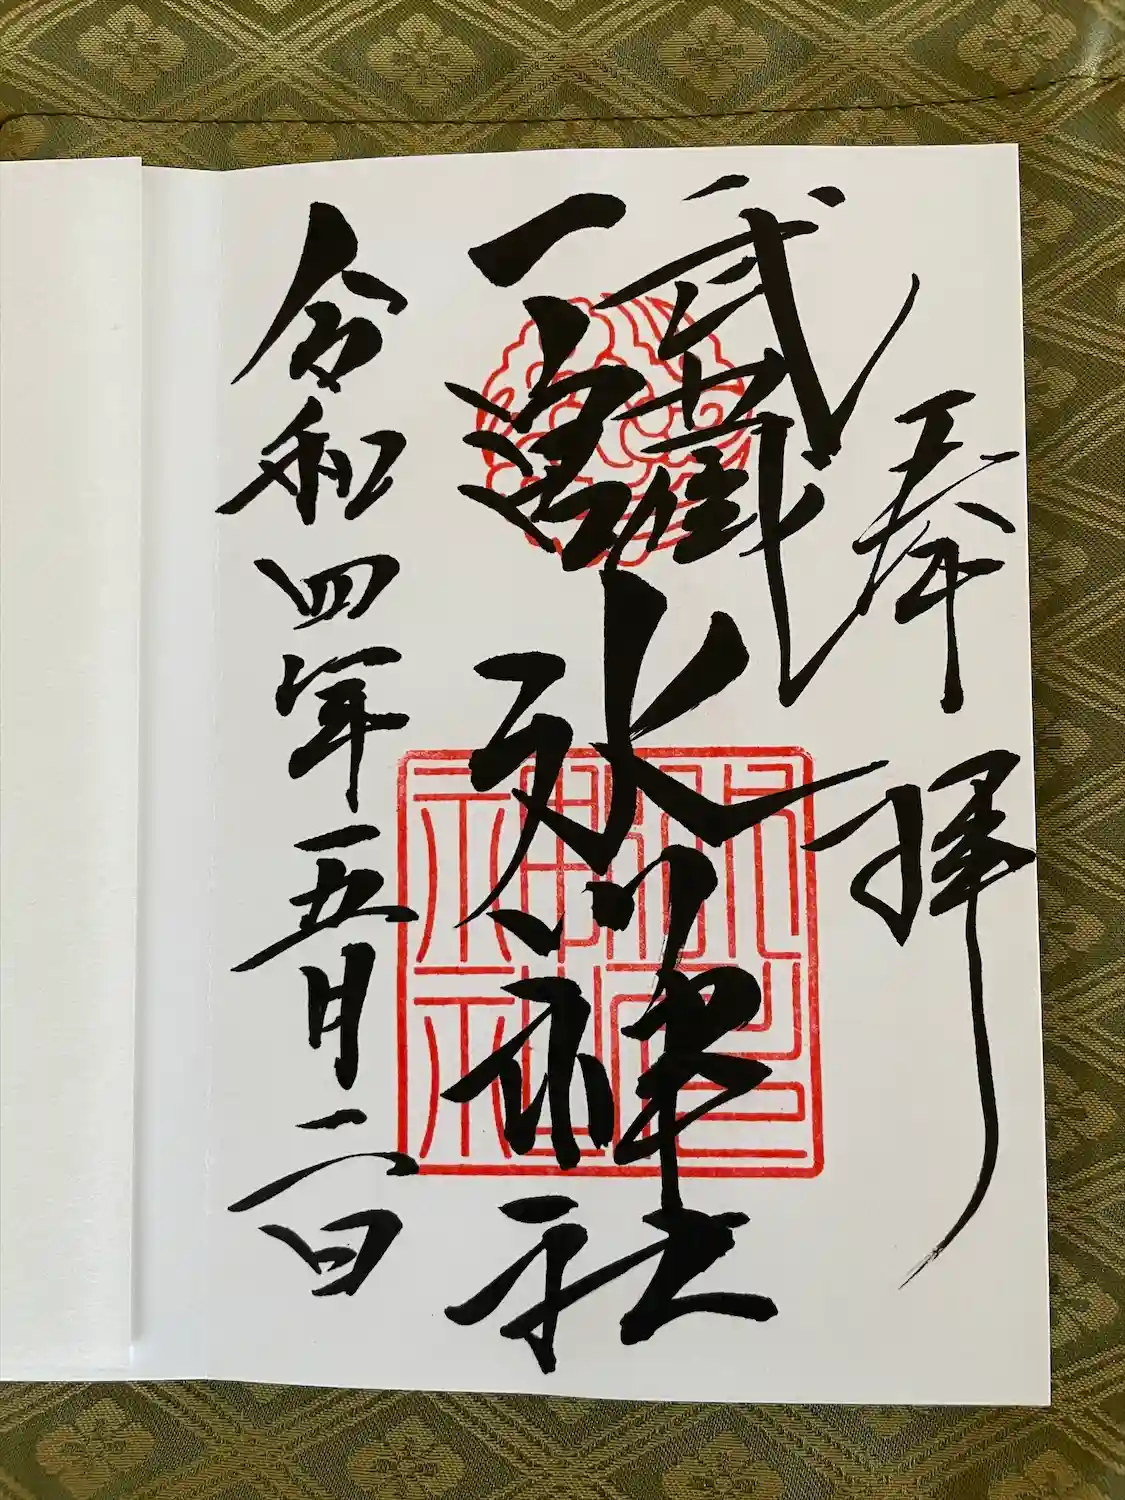 奉拝
武蔵
一宮
氷川神社
令和四年五月二日